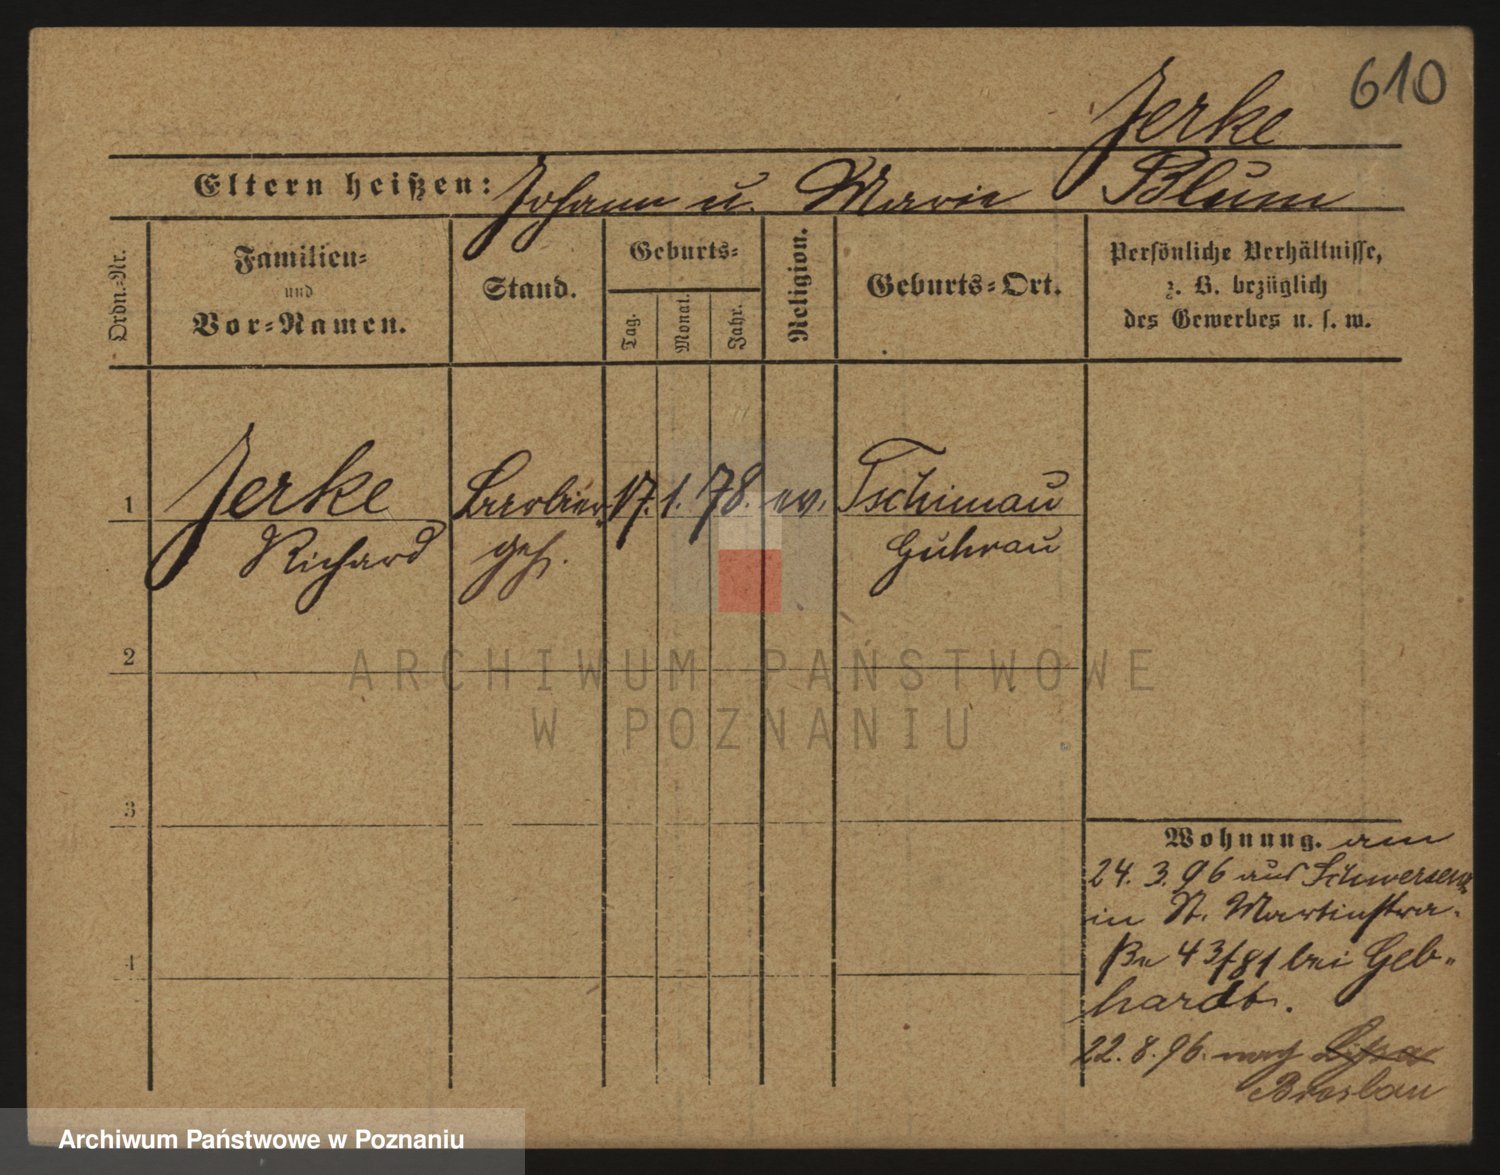 610
Jerke
Eltern heißen: Johann u. Marie Blum
Ordn.-Nr.
Familien-
und
Vor-Namen.
Stand.
Geburts-
Tag.
Monat.
Jahr.
Religion.
Geburts-Ort.
Persönliche Verhältnisse,
z. B. bezüglich
des Gewerbes u. s. w.
1 Jerke Barbier 17. 1. 78. ev. Tschirnau
Richard geh. Guhrau
2
3
4
Wohnung. am
24. 3. 96 aus Schwersenz
in St. Martinstra-
ße 43/81 bei Geb-
hardt.
22. 8. 96. nach Lissa
Breslau
ARCHIWUM PAŃSTWOWE
W POZNANIU
Archiwum Państwowe w Poznaniu